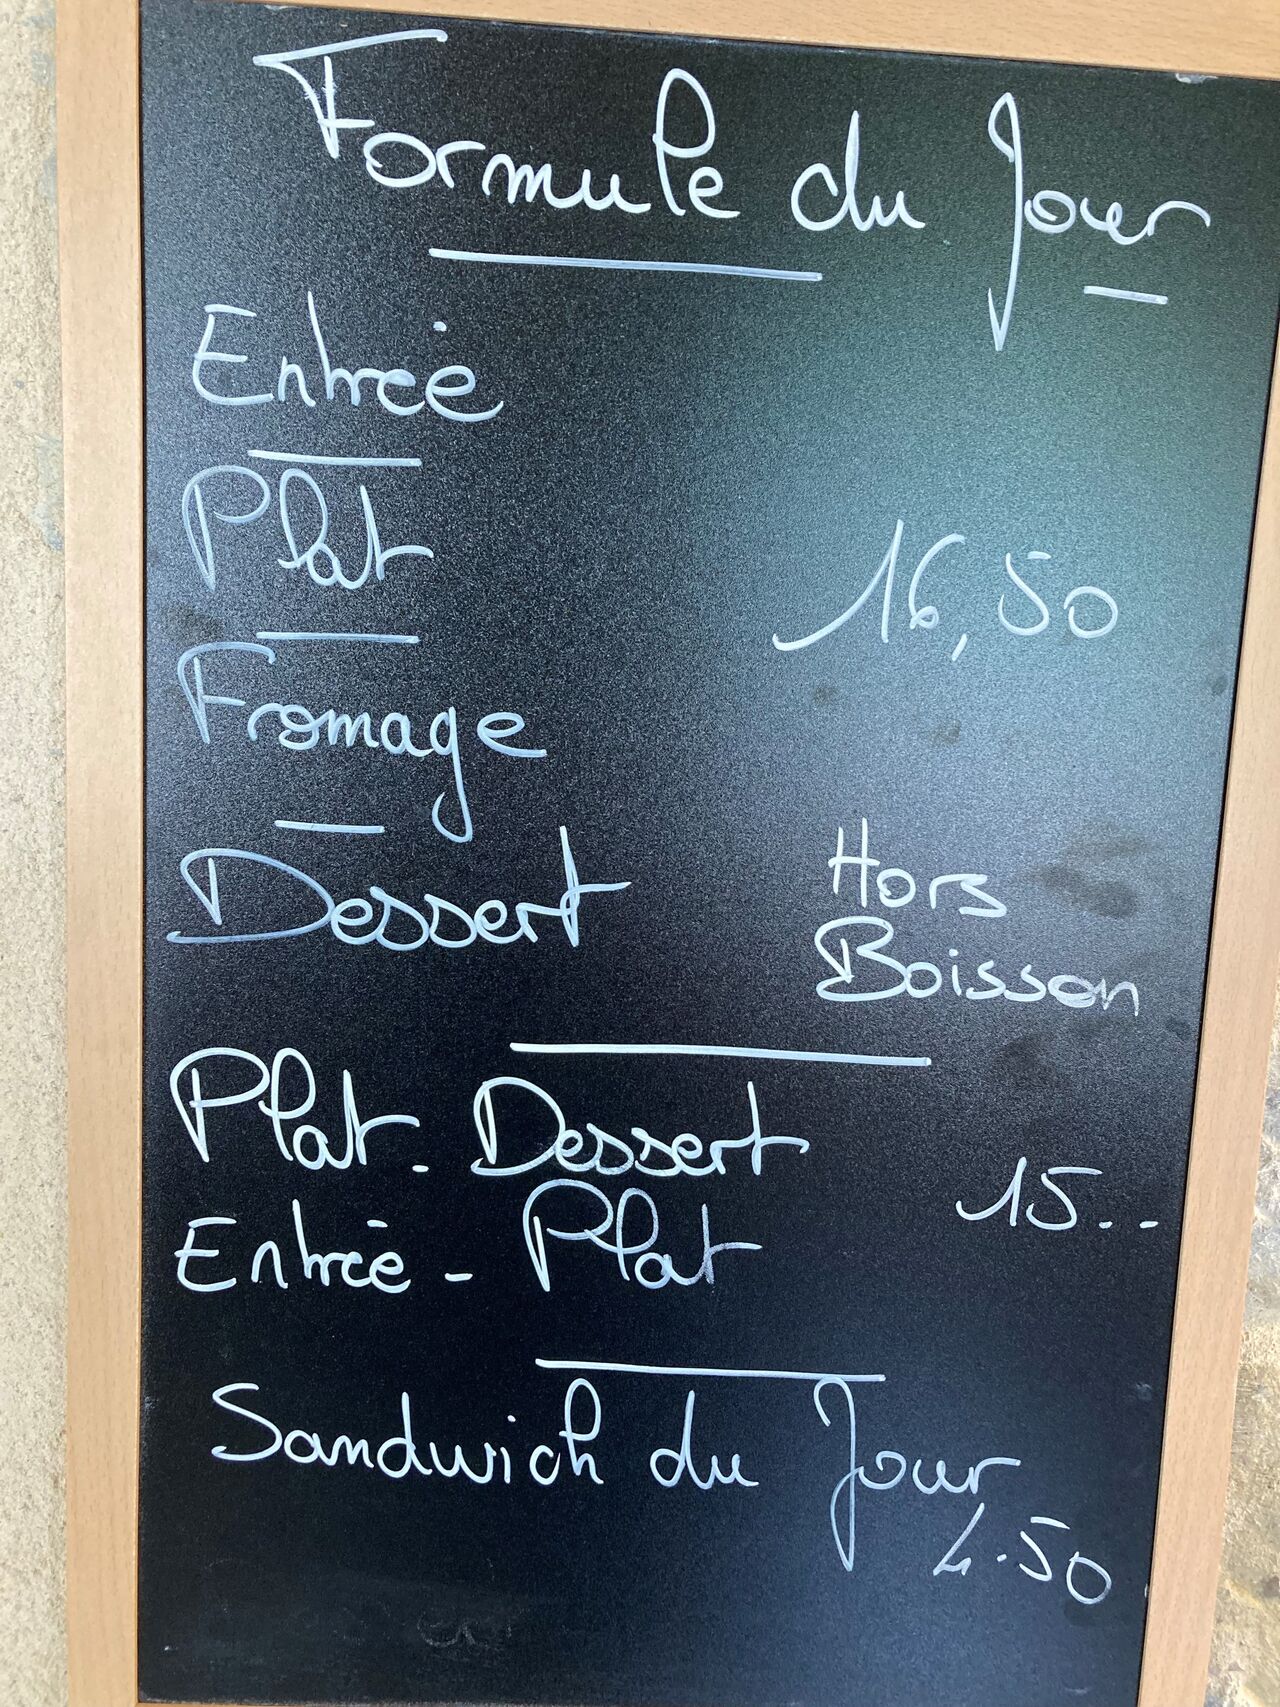 Formule du Jour
Entrée
Plat
16,50
Fromage
Dessert
Hors
Boisson
Plat - Dessert
15..
Entrée - Plat
Sandwich du Jour
4.50